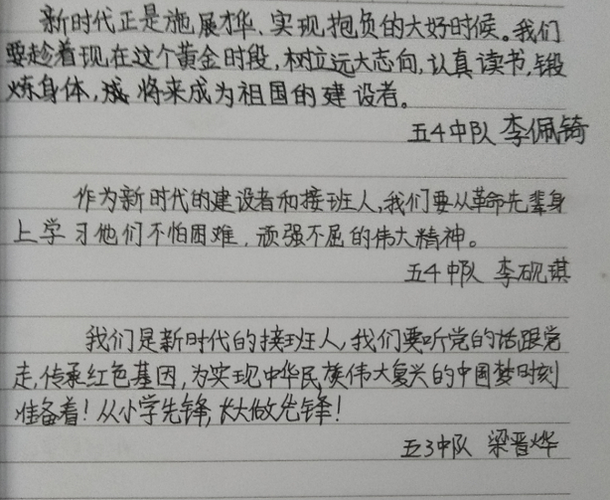 新时代正是施展才华、实现抱负的大好时候。我们
要趁着现在这个黄金时段,树立远大志向,认真读书,锻
炼身体,将来成为祖国的建设者。
五4中队 李佩锜
作为新时代的建设者和接班人,我们要从革命先辈身
上学习他们不怕困难,顽强不屈的伟大精神。
五4中队 李砚琪
我们是新时代的接班人,我们要听党的话跟党
走,传承红色基因,为实现中华民族伟大复兴的中国梦时刻
准备着!从小学先锋,长大做先锋!
五3中队 梁晋烨